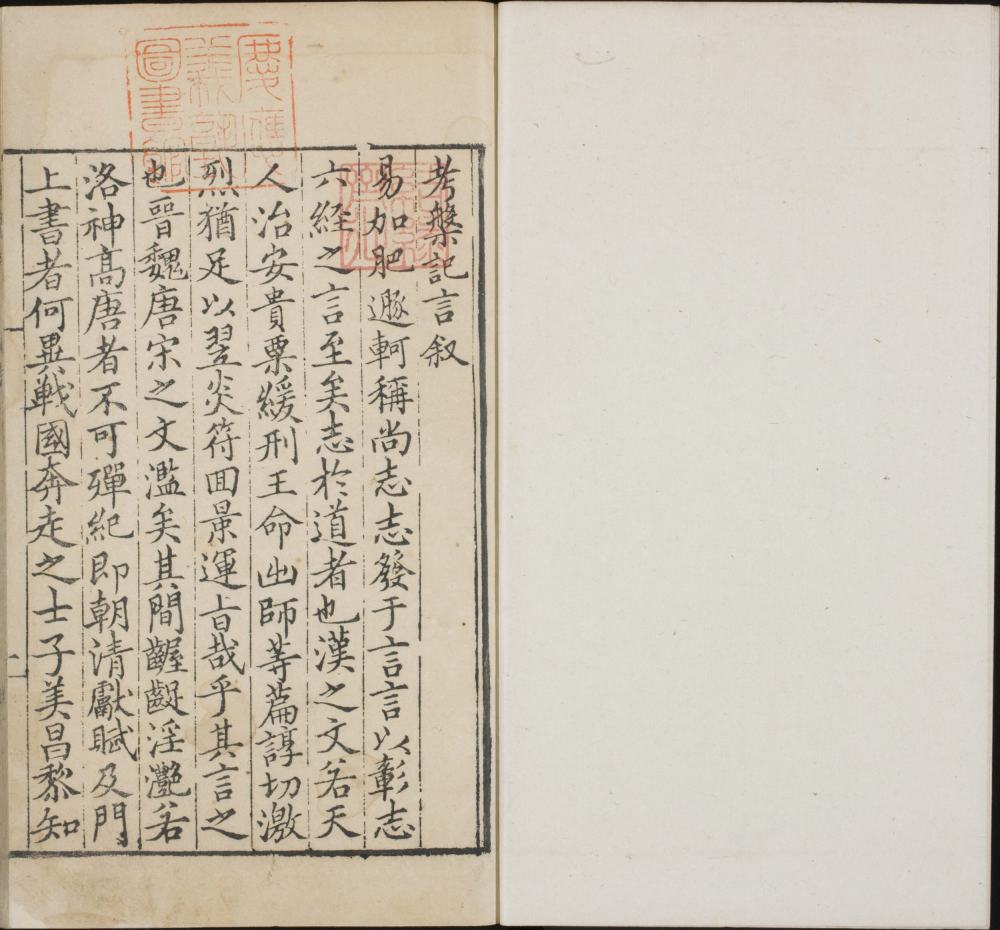 考槃記言叙
易加肥遯軻稱尚志志發于言言以彰志
六経之言至矣志於道者也漢之文若天
人治安貴粟緩刑王命出師等篇諄切激
烈猶足以翌炎符囬景運旨哉乎其言之
也晉魏唐宋之文濫矣其間齷齪淫灔若
洛神髙唐者不可殫紀即朝清獻賦及門
上書者何異戰國奔走之士子美昌黎知